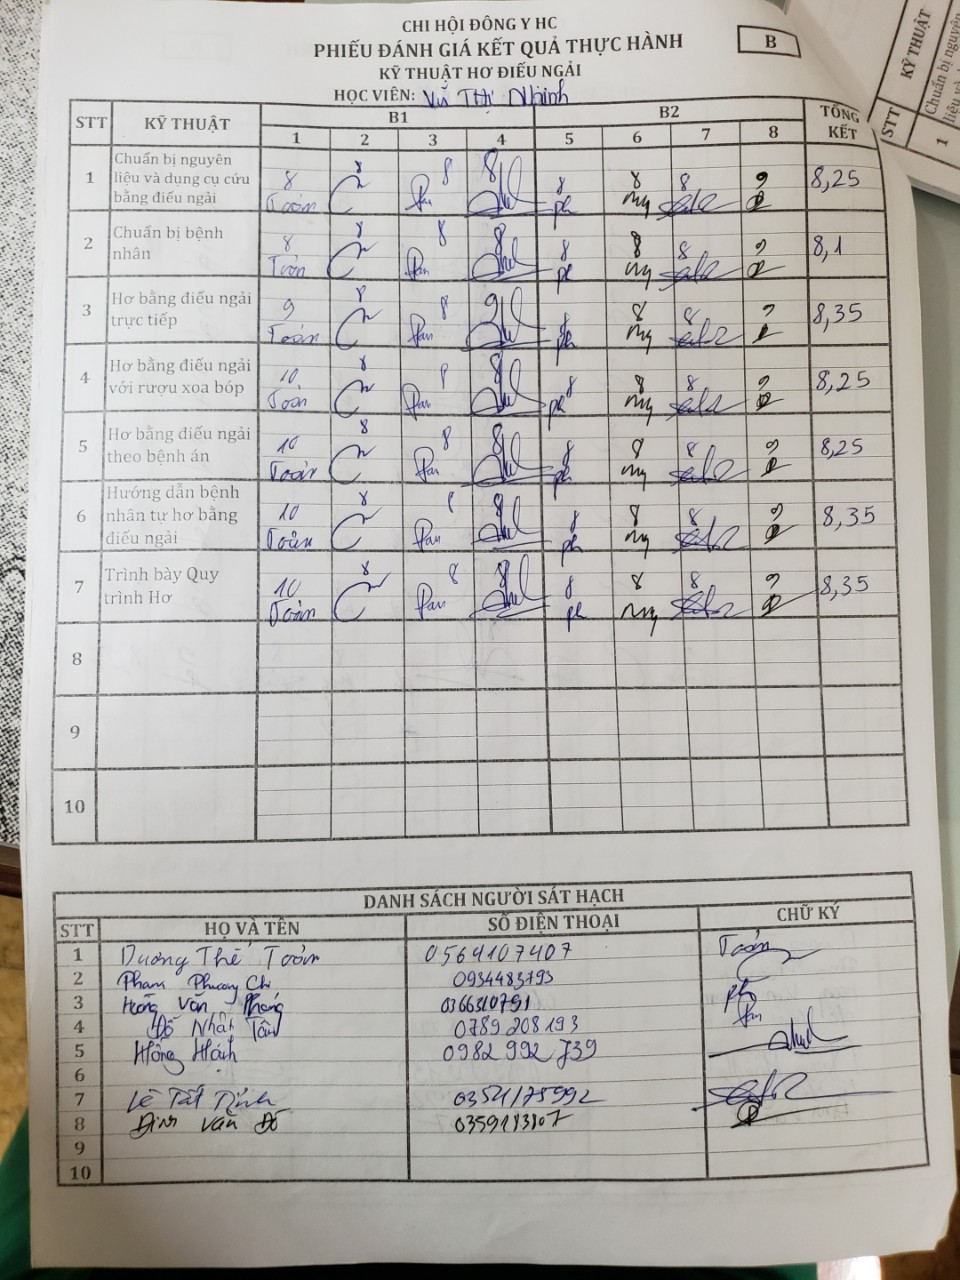 CHI HỘI ĐÔNG Y HC
PHIẾU ĐÁNH GIÁ KẾT QUẢ THỰC HÀNH
B
KỸ THUẬT HƠ ĐIẾU NGẢI
HỌC VIÊN: Vũ Thị Nhinh
STT KỸ THUẬT B1 B2 TỔNG KẾT
1 2 3 4 5 6 7 8
1 Chuẩn bị nguyên liệu và dụng cụ cứu bằng điếu ngải 8 8 8 8 8 8 8 9 8,25
Toản
2 Chuẩn bị bệnh nhân 8 8 8 8 8 8 8 9 8,1
Toản
3 Hơ bằng điếu ngải trực tiếp 9 8 8 9 8 8 8 9 8,35
Toản
4 Hơ bằng điếu ngải với rượu xoa bóp 10 8 8 8 8 8 8 9 8,25
Toản
5 Hơ bằng điếu ngải theo bệnh án 10 8 8 8 8 8 8 9 8,25
Toản
6 Hướng dẫn bệnh nhân tự hơ bằng điếu ngải 10 8 8 8 8 8 8 9 8,35
Toản
7 Trình bày Quy trình Hơ 10 8 8 8 8 8 8 9 8,35
Toản
8
9
10
DANH SÁCH NGƯỜI SÁT HẠCH
STT HỌ VÀ TÊN SỐ ĐIỆN THOẠI CHỮ KÝ
1 Dương Thế Toản 0564107407 Toản
2 Phạm Phương Chi 0934483193
3 Hoàng Văn 0366310791
4 Đỗ Nhật Tân 0789 208 193
5 Hồng Hạnh 0982 992 739
6
7 Lê Tất 0354175992
8 Đinh Văn Đô
9
10
KỸ THUẬT
STT
Chuẩn bị nguyên
1